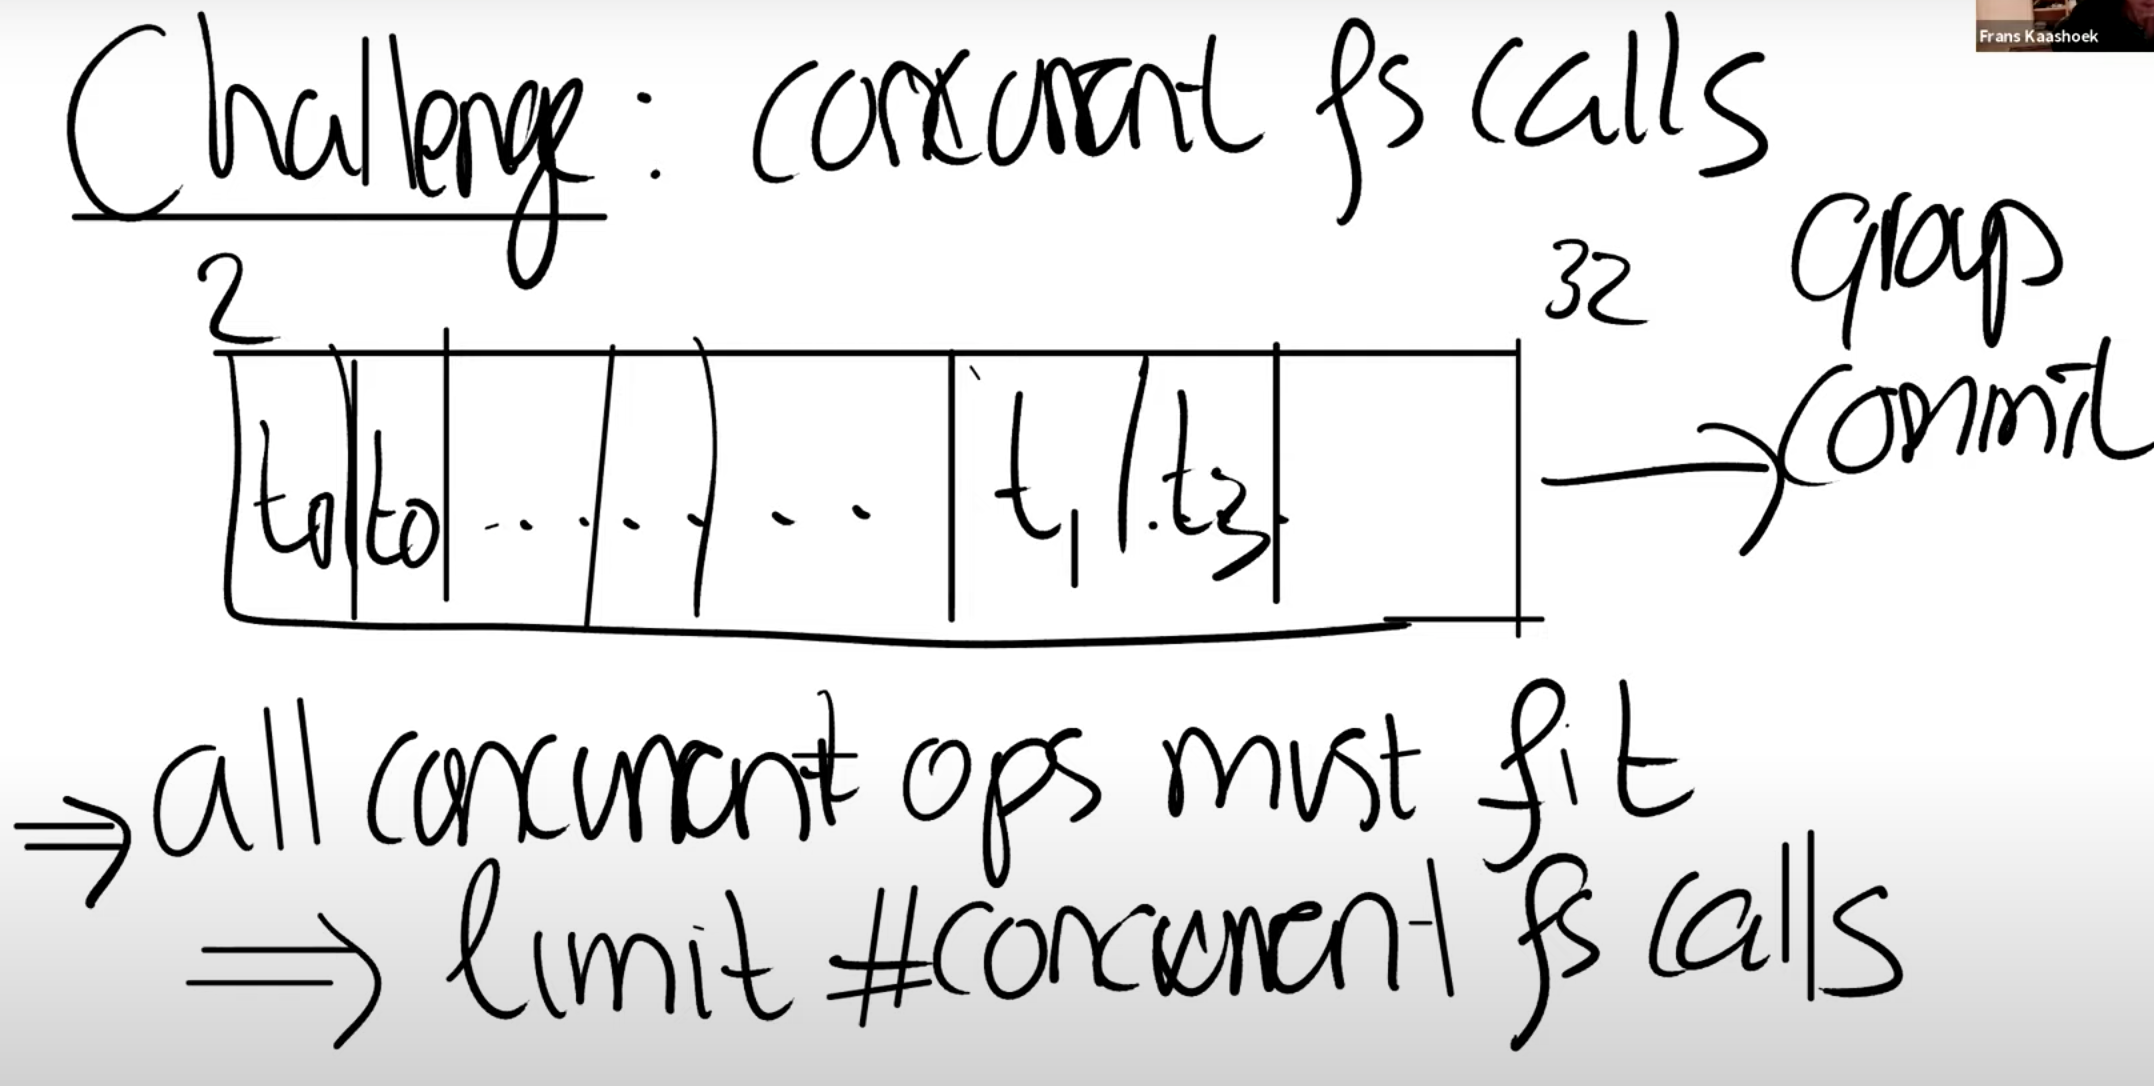 Frans Kaashoek
Challenge: concurrent fs calls
2 32 group
commit
t0 t0 ..... . . t1 .t3.
⇒ all concurrent ops must fit
⇒ limit #concurrent fs calls